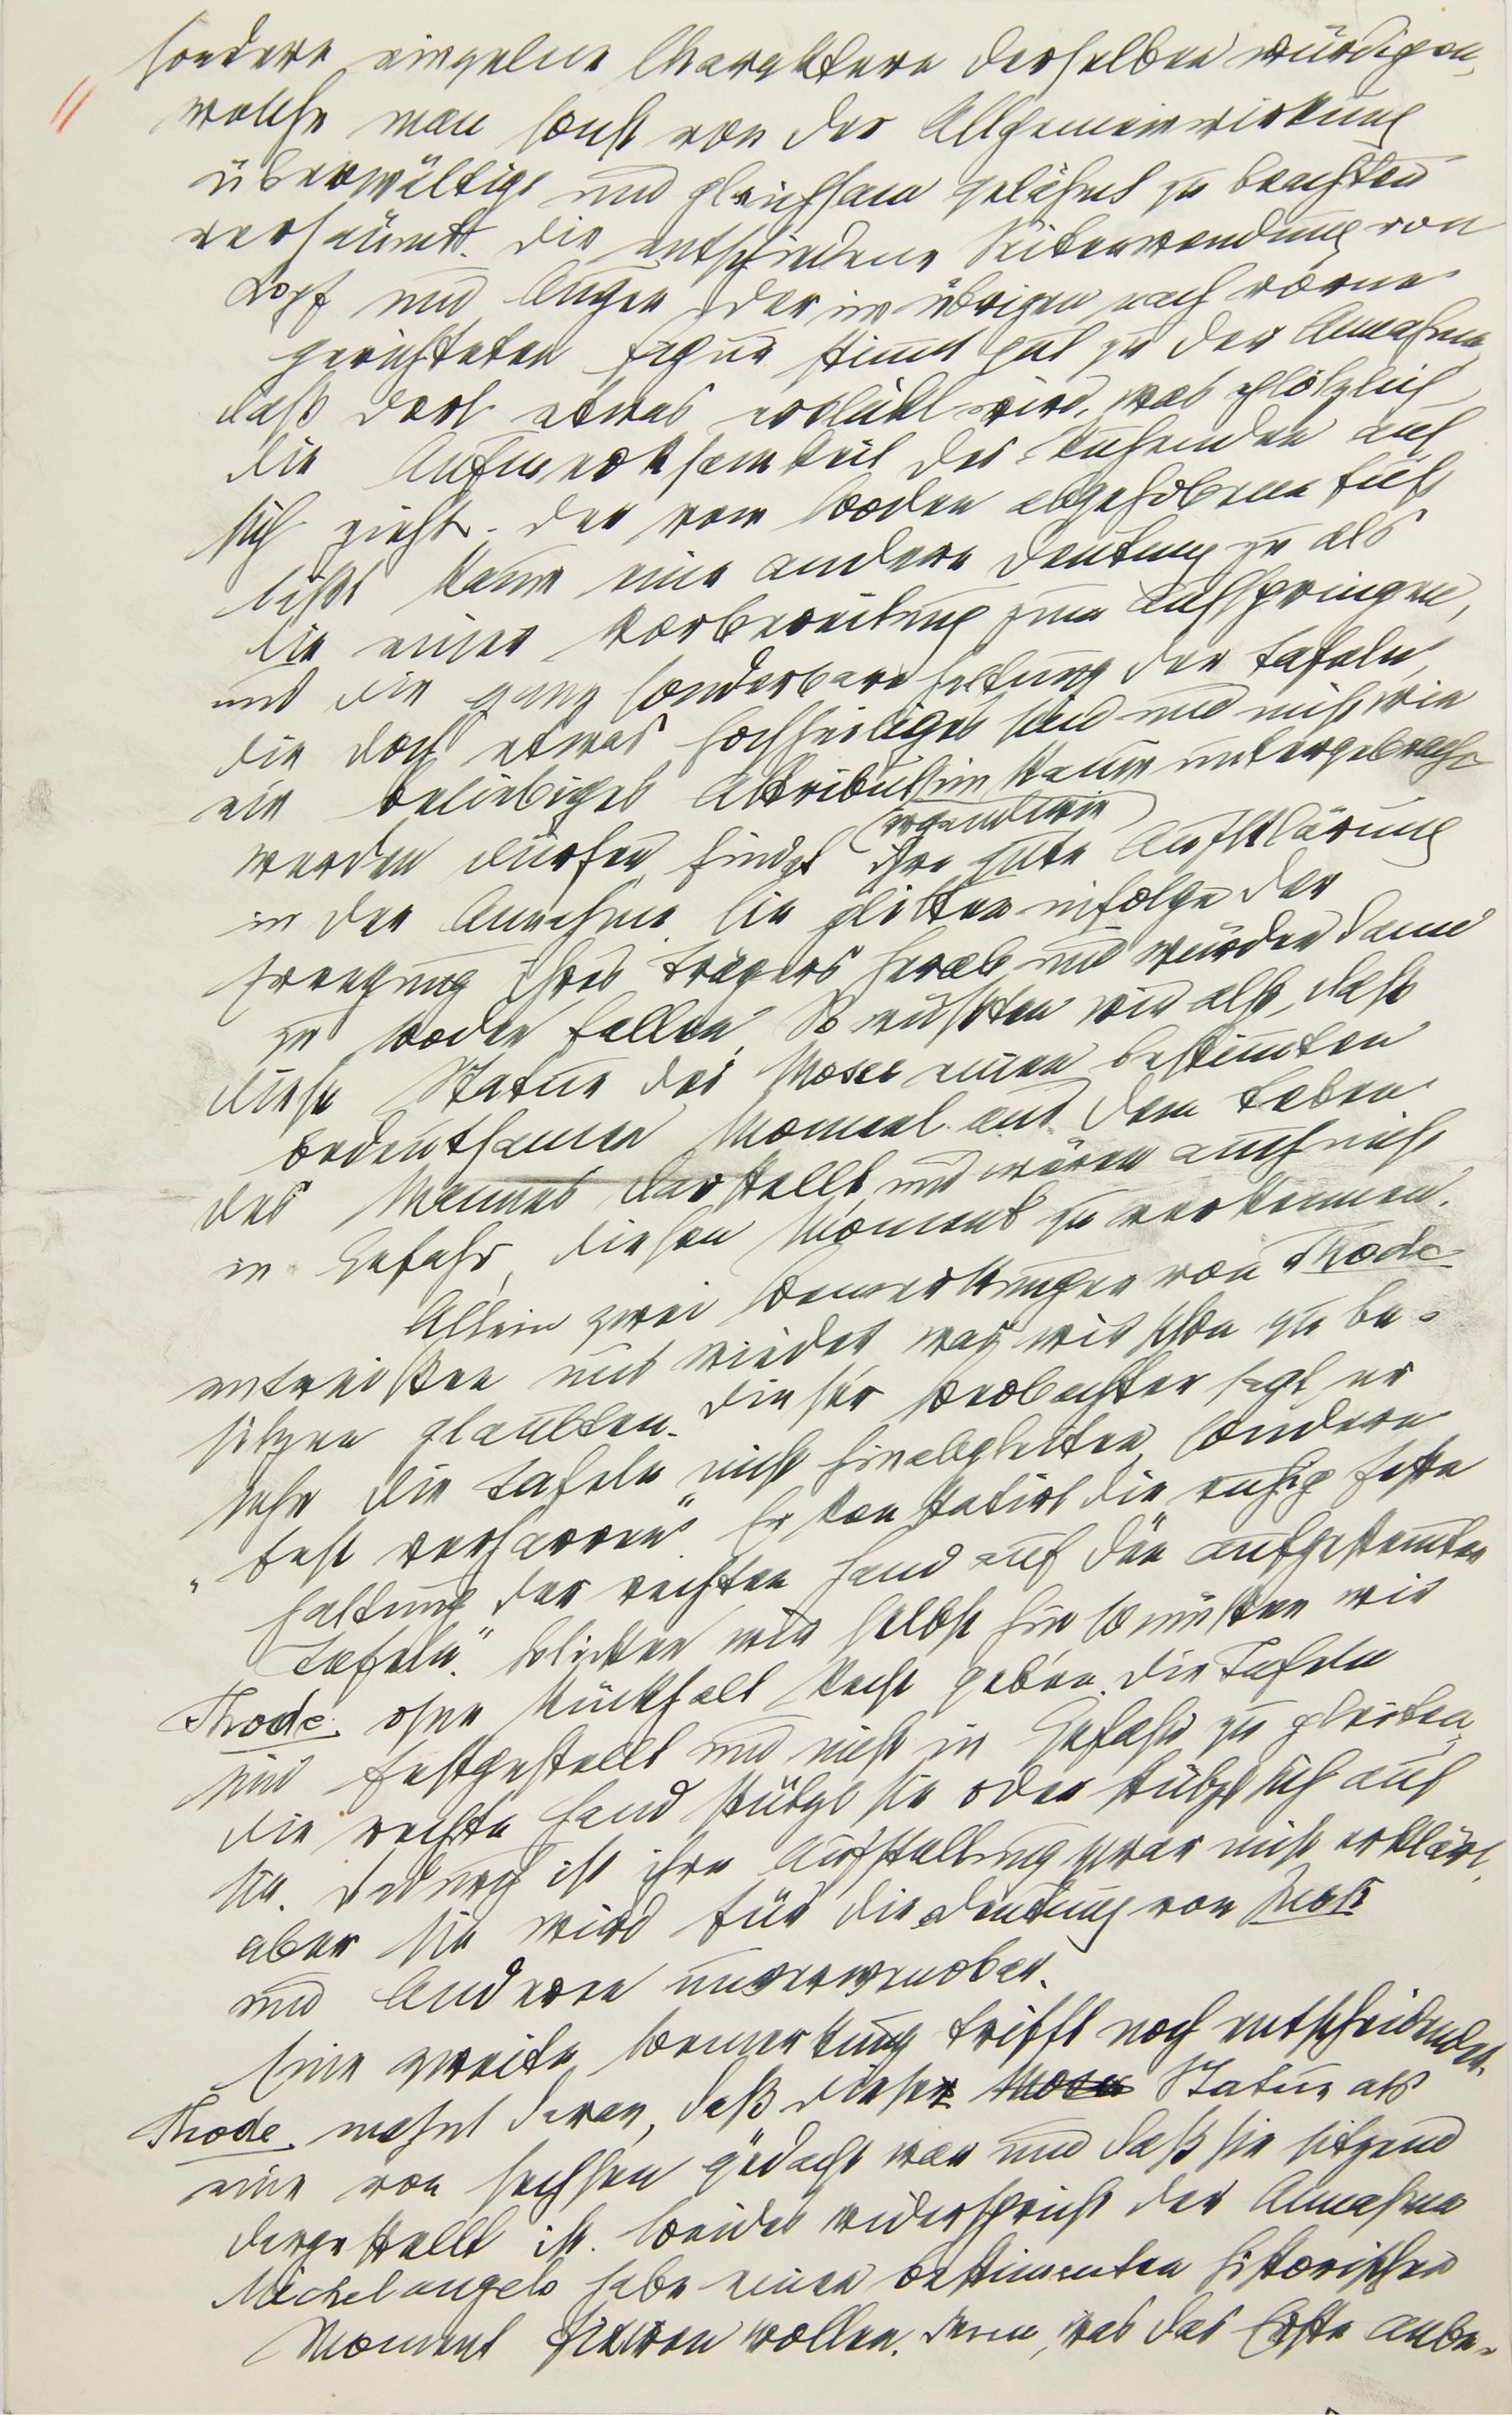 11
sondere einzelne Charaktere derselben würdigen,
welche man sonst von der Allgemeinwirkung
überwältigt und gleichsam gelähmt zu beachten
versäumt. Die entschiedene Seitenwendung von
Kopf und Augen der im übrigen nach vorne
gerichteten Figur stimmt gut zu der Annahme,
daß dort etwas erblickt wird, was plötzlich
die Aufmerksamkeit des Ruhenden auf
sich zieht. Der vom Boden abgehobene Fuß
läßt kaum eine andere Deutung zu als
die einer Vorbereitung zum Aufspringen,
und die ganz sonderbare Haltung der Tafeln,
die doch etwas hochheiliges sind und nicht wie
ein beliebiges Attribut im Raum untergebracht
irgendwie
werden dürfen, findet ihre gute Aufklärung
in der Annahme, sie glitten infolge der
Erregung ihres Trägers herab und würden dann
zu Boden fallen. So wüßten wir also, daß
diese Statue des Moses einen bestimmten
bedeutsamen Moment aus dem Leben
des Mannes darstellt, und wären auch nicht
in Gefahr, diesen Moment zu verkennen.
Allein zwei Bemerkungen von Thode
entreißen uns wieder, was wir schon zu be-
sitzen glaubten. Dieser Beobachter sagt, er
sehe die Tafeln nicht hinabgleiten, sondern
„fest verharren“ Er konstatirt „die ruhig feste
Haltung der rechten Hand auf den aufgestemmten
Tafeln.“ Blicken wir selbst hin so müssen wir
Thode ohne Rückhalt Recht geben. Die Tafeln
sind festgestellt und nicht in Gefahr zu gleiten,
die rechte Hand stützt sie oder stützt sich auf
sie. Dadurch ist ihre Aufstellung zwar nicht erklärt,
aber sie wird für die Deutung von Justi
und Anderen unverwendbar.
Eine zweite Bemerkung trifft noch entscheidender.
Thode mahnt daran, daß diese Statue als
eine von sechsen gedacht war und daß sie sitzend
dargestellt ist. Beides widerspricht der Annahme
Michelangelo habe einen bestimmten historischen
Moment fixiren wollen. Denn, was das Erste anbe-